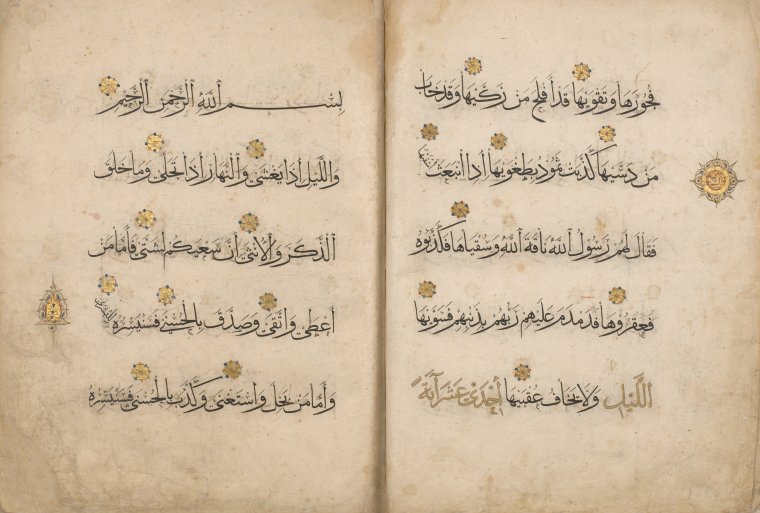 فجورها وتقويها قد أفلح من زكيها وقد خاب
من دسيها كذبت ثمود بطغويها إذ انبعث
فقال لهم رسول الله ناقة الله وسقياها فكذبوه
فعقروها فدمدم عليهم ربهم بذنبهم فسويها
الليل ولا يخاف عقبيها أحدى عشر آية
بسم الله الرحمن الرحيم
والليل إذا يغشى والنهار إذا تجلى وما خلق
الذكر والأنثى إن سعيكم لشتى فأما من
أعطى واتقى وصدق بالحسنى فسنيسره لليسرى
وأما من بخل واستغنى وكذب بالحسنى فسنيسره